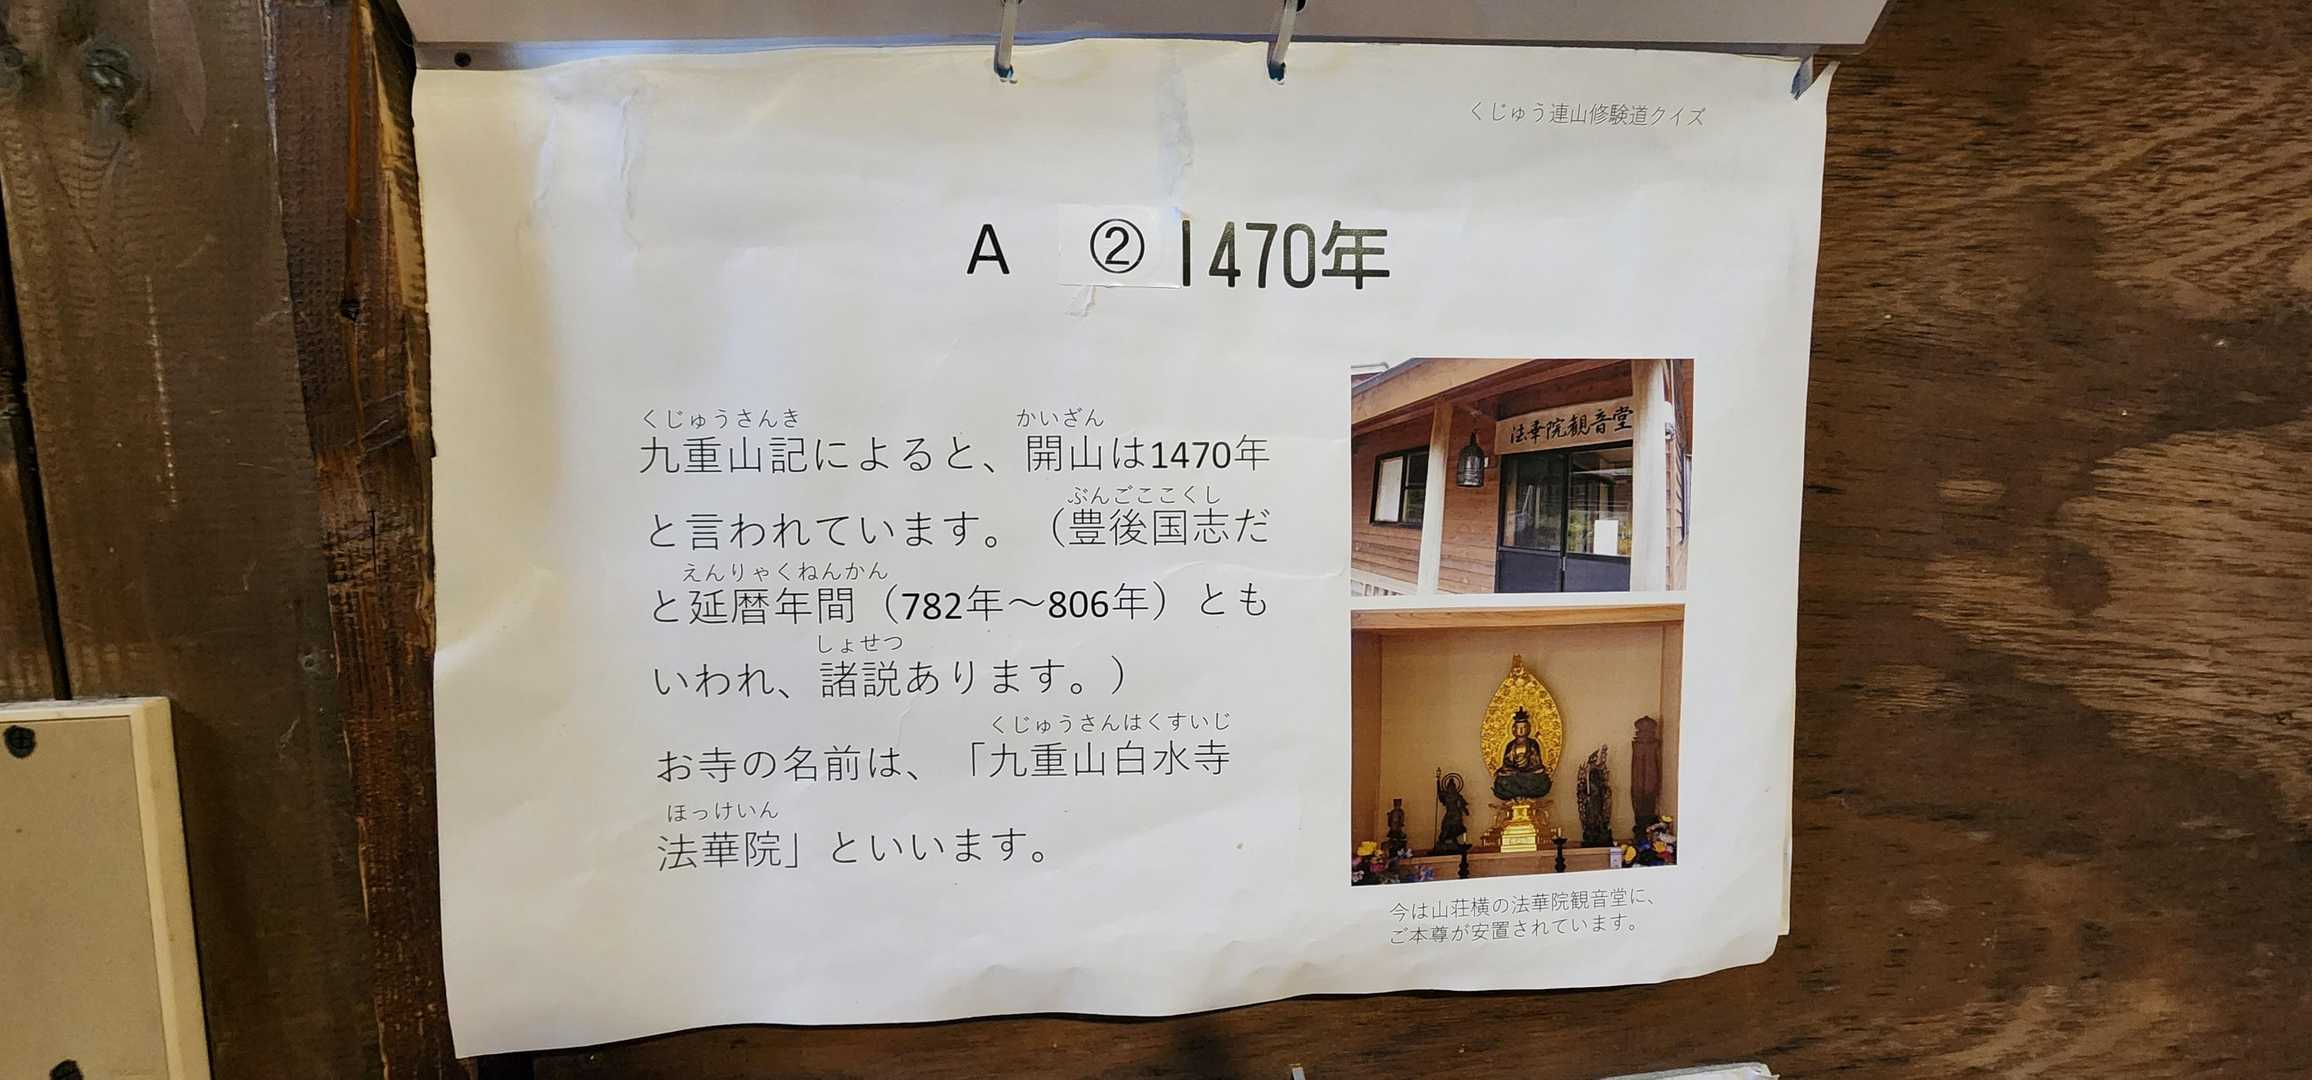 くじゅう連山修験道クイズ
A ②1470年
くじゅうさんき かいざん
九重山記によると、開山は1470年
ぶんごここくし
と言われています。（豊後国志だ
えんりゃくねんかん
と延暦年間（782年～806年）とも
しょせつ
いわれ、諸説あります。）
くじゅうさんはくすいじ
お寺の名前は、「九重山白水寺
ほっけいん
法華院」といいます。
法華院観音堂
今は山荘横の法華院観音堂に、
ご本尊が安置されています。